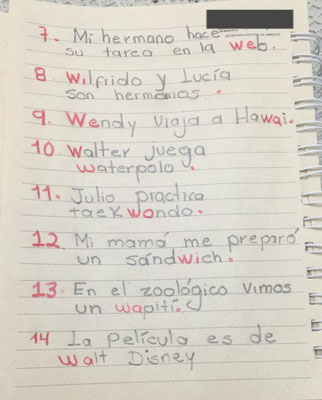 7. Mi hermano hace
su tarea en la web.
8 Wilfrido y Lucía
son hermanos.
9. Wendy viaja a Hawai.
10. Walter juega
waterpolo.
11. Julio practica
taekwondo.
12 Mi mamá me preparó
un sándwich.
13. En el zoológico vimos
un wapití.
14. La película es de
Walt Disney